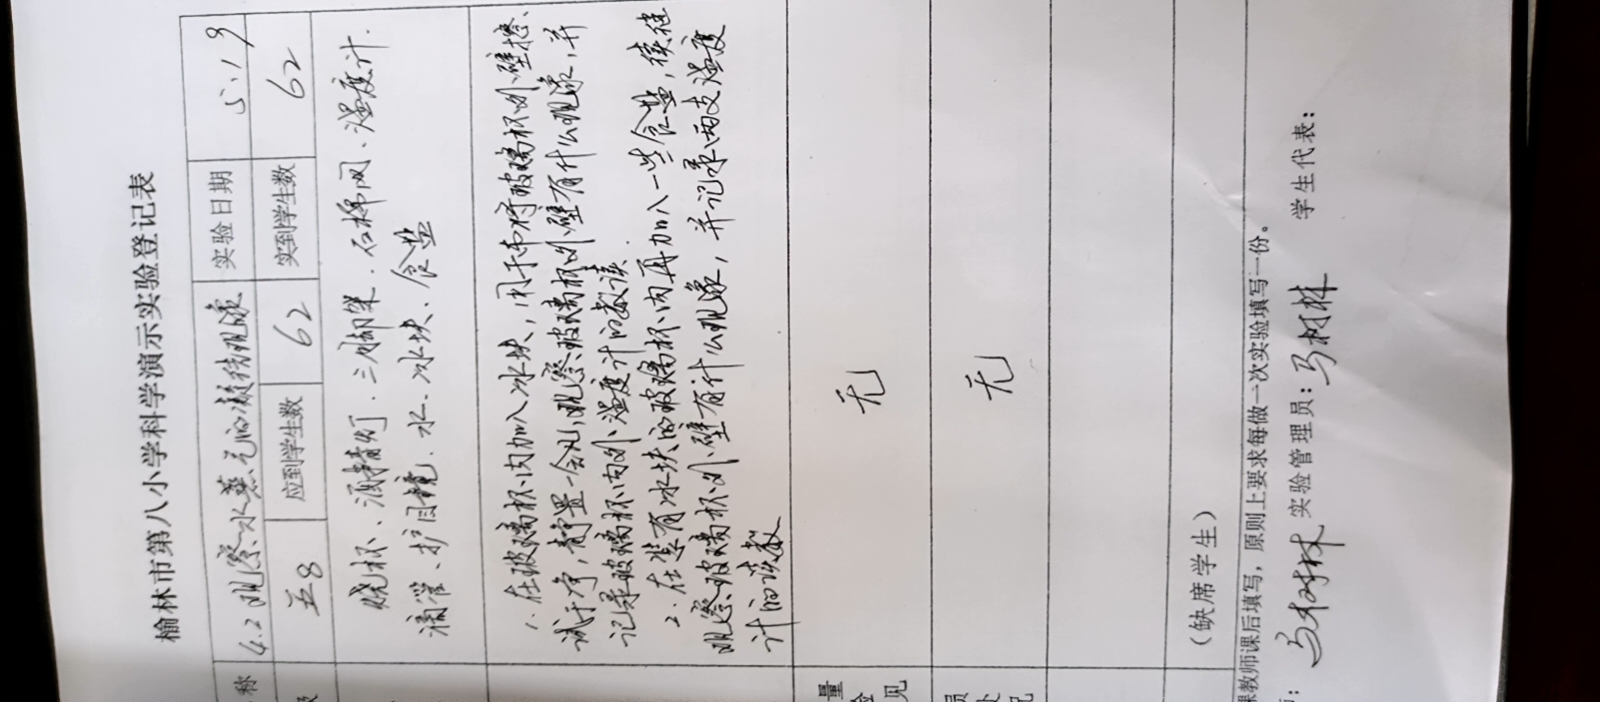 榆林市第八小学科学演示实验登记表
称 4.2观察水蒸气的凝结现象 实验日期 5.19
级 五8 应到学生数 62 实到学生数 62
烧杯、酒精灯、三脚架、石棉网、温度计.
滴管、护目镜.水、冰块、食盐
1.在玻璃杯内加入冰块,用干布将玻璃杯外壁擦
试干净,静置一会儿,观察玻璃杯外壁有什么现象,并
记录玻璃杯内外温度计的数读.
2.在装有冰块的玻璃杯内再加入一些食盐,续继
观察玻璃杯外壁有什么现象,并记录两支温度
计的读数
量
验
见
无
员
处
况
无
(缺席学生)
课教师课后填写,原则上要求每做一次实验填写一份。
师: 马树林 实验管理员: 马树林 学生代表: